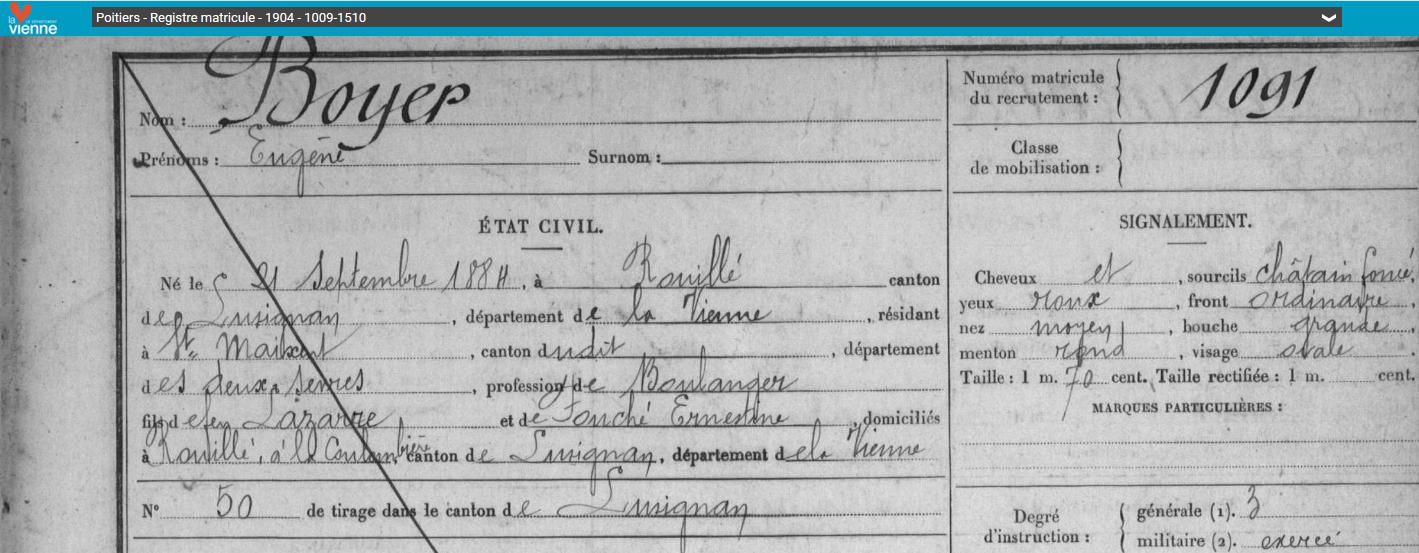 la
LE DÉPARTEMENT
vienne
Poitiers - Registre matricule - 1904 - 1009-1510
Nom : Boyer
Prénoms : Eugène Surnom :
ÉTAT CIVIL.
Né le 21 Septembre 1884, à Rouillé canton
de Lusignan, département de la Vienne, résidant
à St Maixent, canton dudit, département
des deux Sèvres, profession de Boulanger
fils de feu Lazarre et de Fouché Ernestine, domiciliés
à Rouillé, à la Coulombière canton de Lusignan, département de la Vienne
N° 50 de tirage dans le canton de Lusignan
Numéro matricule
du recrutement : 1091
Classe
de mobilisation :
SIGNALEMENT.
Cheveux et, sourcils châtain foncé,
yeux roux, front ordinaire,
nez moyen, bouche grande,
menton rond, visage ovale.
Taille : 1 m. 70 cent. Taille rectifiée : 1 m. cent.
MARQUES PARTICULIÈRES :
Degré
d'instruction :
générale (1). 3
militaire (2). exercé